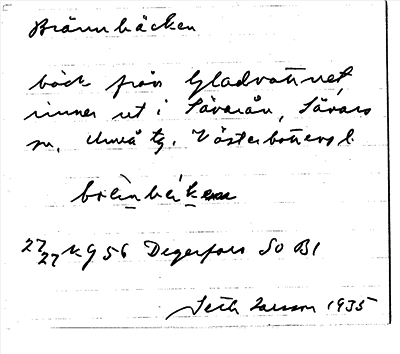 Brännbäcken
bäck från Gladvattnet,
rinner ut i Sävarån, Sävars
sn, Umeå tg. Västerbottens l.
27/27 NV 56 Degerfors SO B1
Seth Larsson 1935